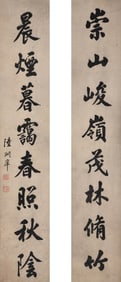 崇山峻嶺茂林脩竹
晨煙暮靄春照秋陰
陸潤庠